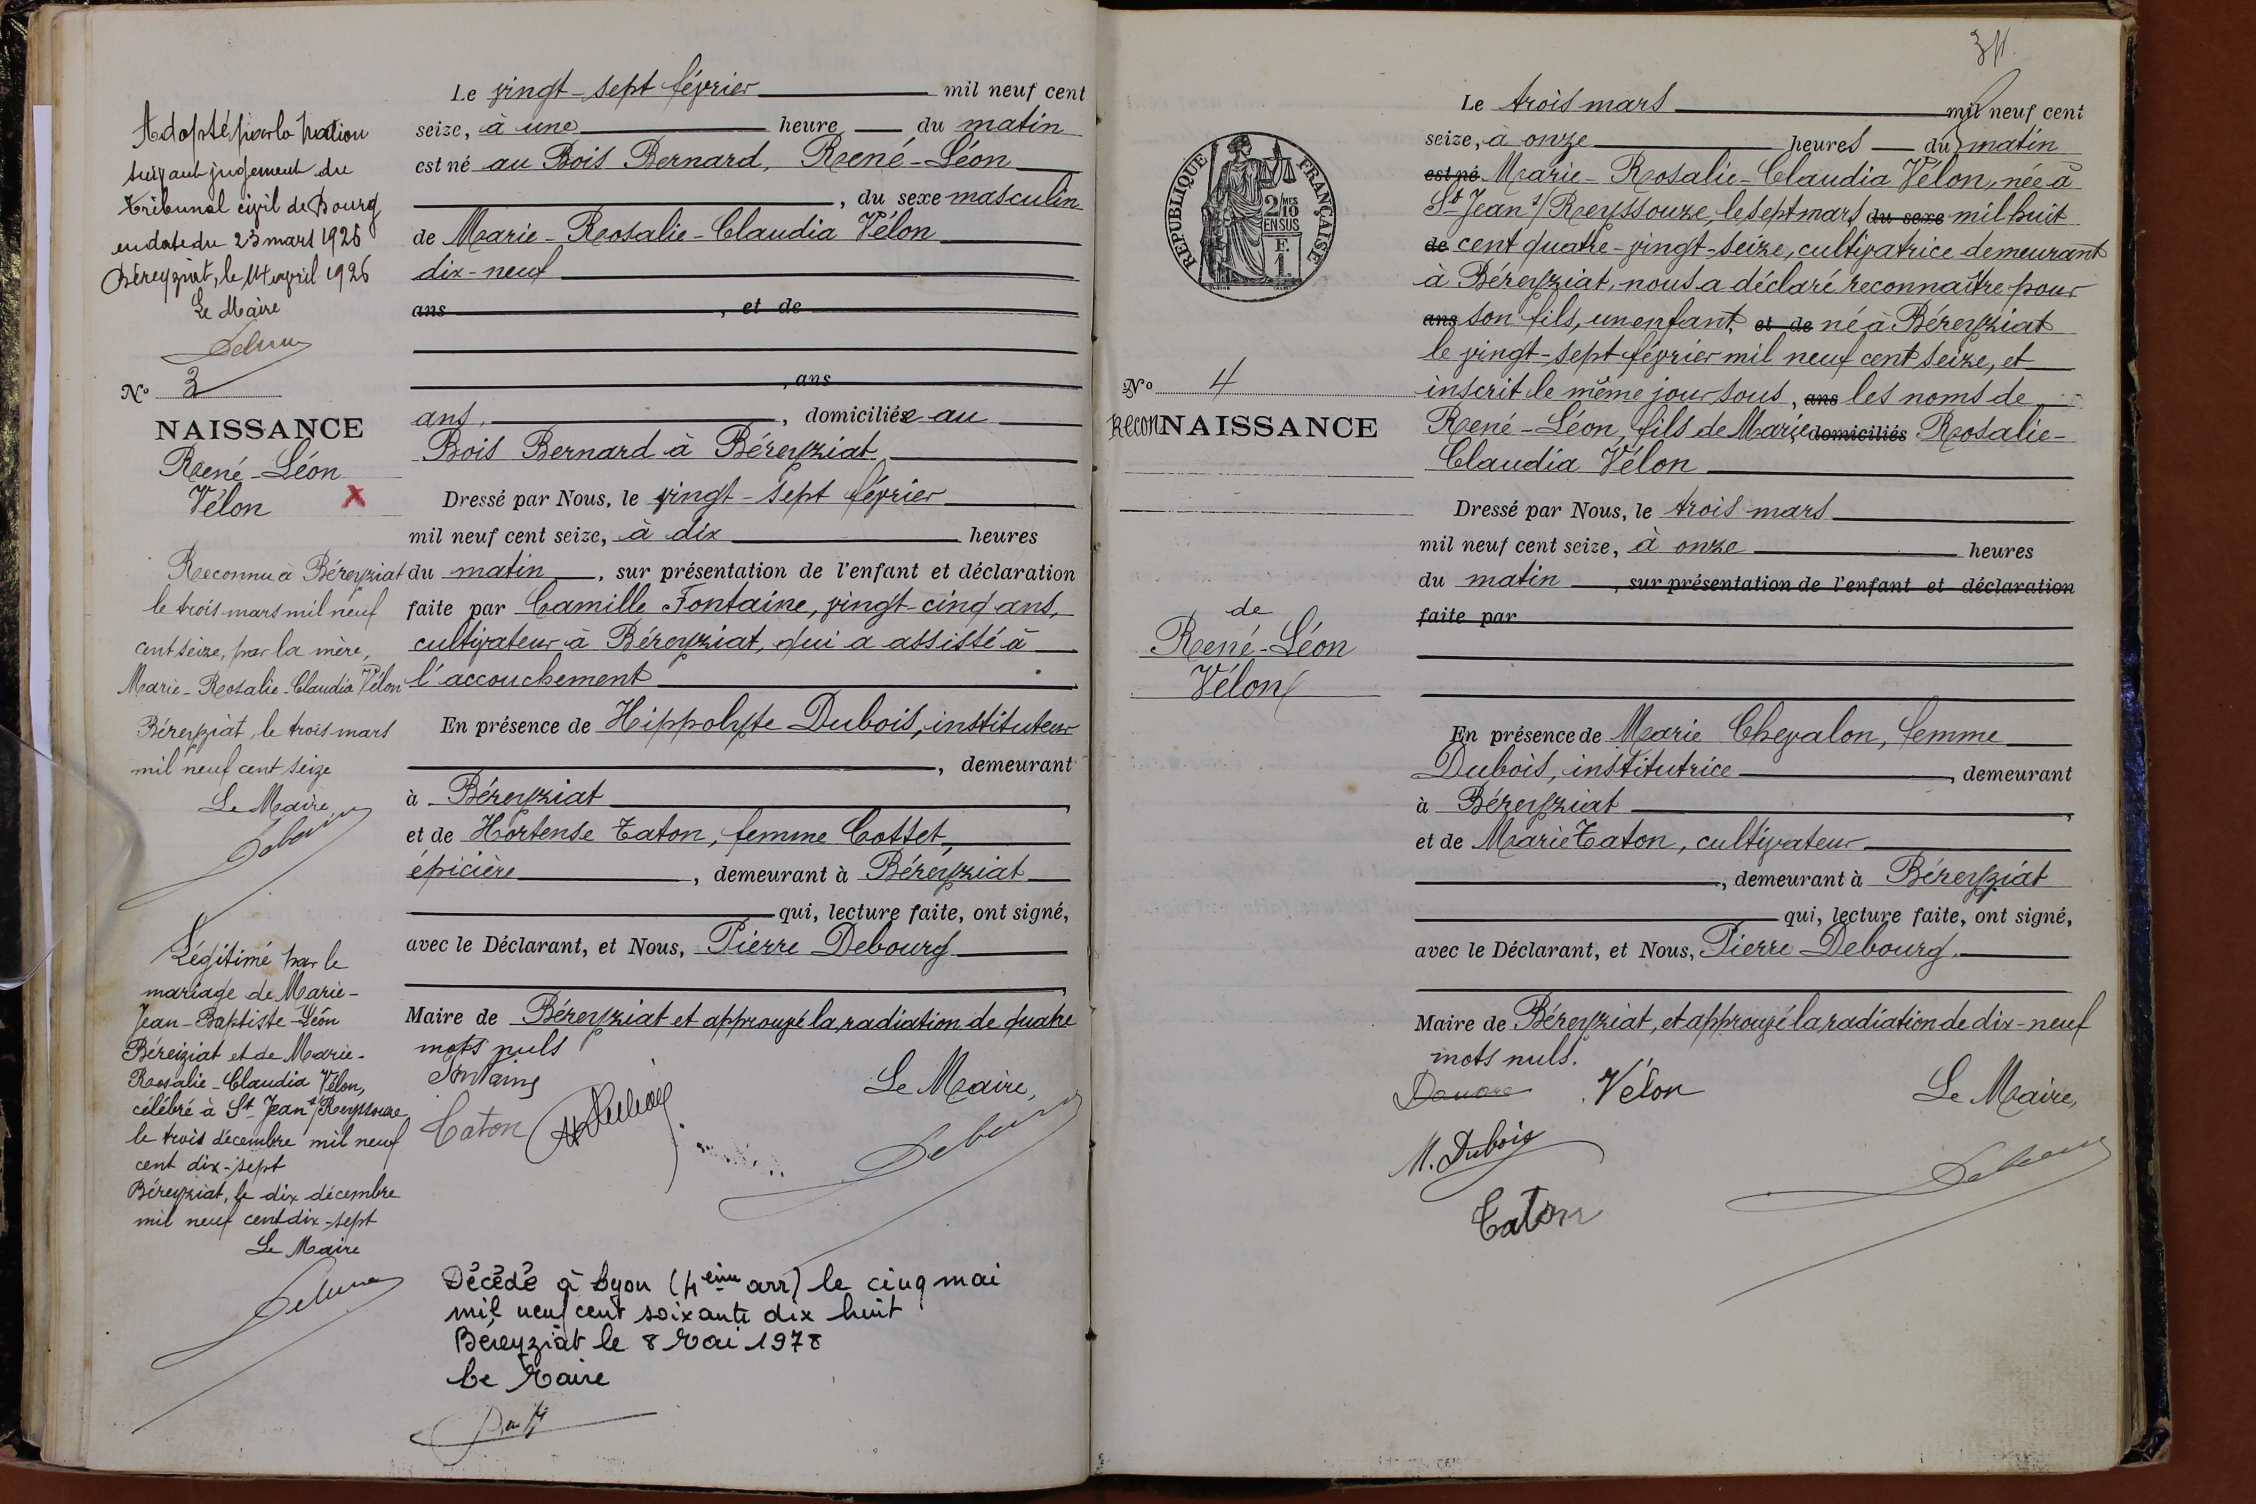 Adopté par la Nation
suivant jugement du
tribunal civil de Bourg
en date du 23 mars 1926
Béreyziat, le 14 avril 1926
Le Maire
No 3
NAISSANCE
René-Léon
Vélon
X
Reconnu à Béreyziat
le trois mars mil neuf
cent seize, par la mère,
Marie-Rosalie-Claudia Vélon
Béreyziat, le trois mars
mil neuf cent seize
Le Maire
Légitimé par le
mariage de Marie-
Jean-Baptiste-Léon
Béreiziat et de Marie-
Rosalie-Claudia Vélon,
célébré à St Jean s/Reyssouze
le trois décembre mil neuf
cent dix-sept
Béreyziat, le dix décembre
mil neuf cent dix-sept
Le Maire
Le vingt-sept février mil neuf cent
seize, à une heure du matin
est né au Bois Bernard, René-Léon
, du sexe masculin
de Marie-Rosalie-Claudia Vélon
dix-neuf
ans , et de
, ans
ans, , domiciliée au
Bois Bernard à Béreyziat
Dressé par Nous, le vingt-sept février
mil neuf cent seize, à dix heures
du matin , sur présentation de l'enfant et déclaration
faite par Camille Fontaine, vingt-cinq ans,
cultivateur à Béreyziat, qui a assisté à
l'accouchement
En présence de Hippolyte Dubois, instituteur
, demeurant
à Béreyziat ,
et de Hortense Caton, femme Cottet,
épicière , demeurant à Béreyziat
qui, lecture faite, ont signé,
avec le Déclarant, et Nous, Pierre Debourg
,
Maire de Béreyziat et approuvé la radiation de quatre
mots nuls
Fontaine
Le Maire,
Caton
Décédé à Lyon (4eme arr) le cinq mai
mil neuf cent soixante dix huit
Béreyziat le 8 Mai 1978
Le Maire
Le trois mars mil neuf cent
seize, à onze heures du matin
est né Marie-Rosalie-Claudia Vélon, née à
St Jean s/Reyssouze, le sept mars du sexe mil huit
de cent quatre-vingt-seize, cultivatrice demeurant
à Béreyziat, nous a déclaré reconnaître pour
ans son fils, un enfant, et de né à Béreyziat
le vingt-sept février mil neuf cent seize, et
inscrit le même jour sous , ans les noms de
René-Léon, fils de Marie domiciliés Rosalie-
Claudia Vélon
REPUBLIQUE FRANÇAISE
2/10 MES
EN SUS
F.
1.
No 4
ReconNAISSANCE
de
René-Léon
Vélon
Dressé par Nous, le trois mars
mil neuf cent seize, à onze heures
du matin , sur présentation de l'enfant et déclaration
faite par
En présence de Marie Chevalon, femme
Dubois, institutrice , demeurant
à Béreyziat ,
et de Marie Caton, cultivateur
, demeurant à Béreyziat
qui, lecture faite, ont signé,
avec le Déclarant, et Nous, Pierre Debourg.
Maire de Béreyziat, et approuvé la radiation de dix-neuf
mots nuls.
Vélon
Le Maire,
M. Dubois
Caton